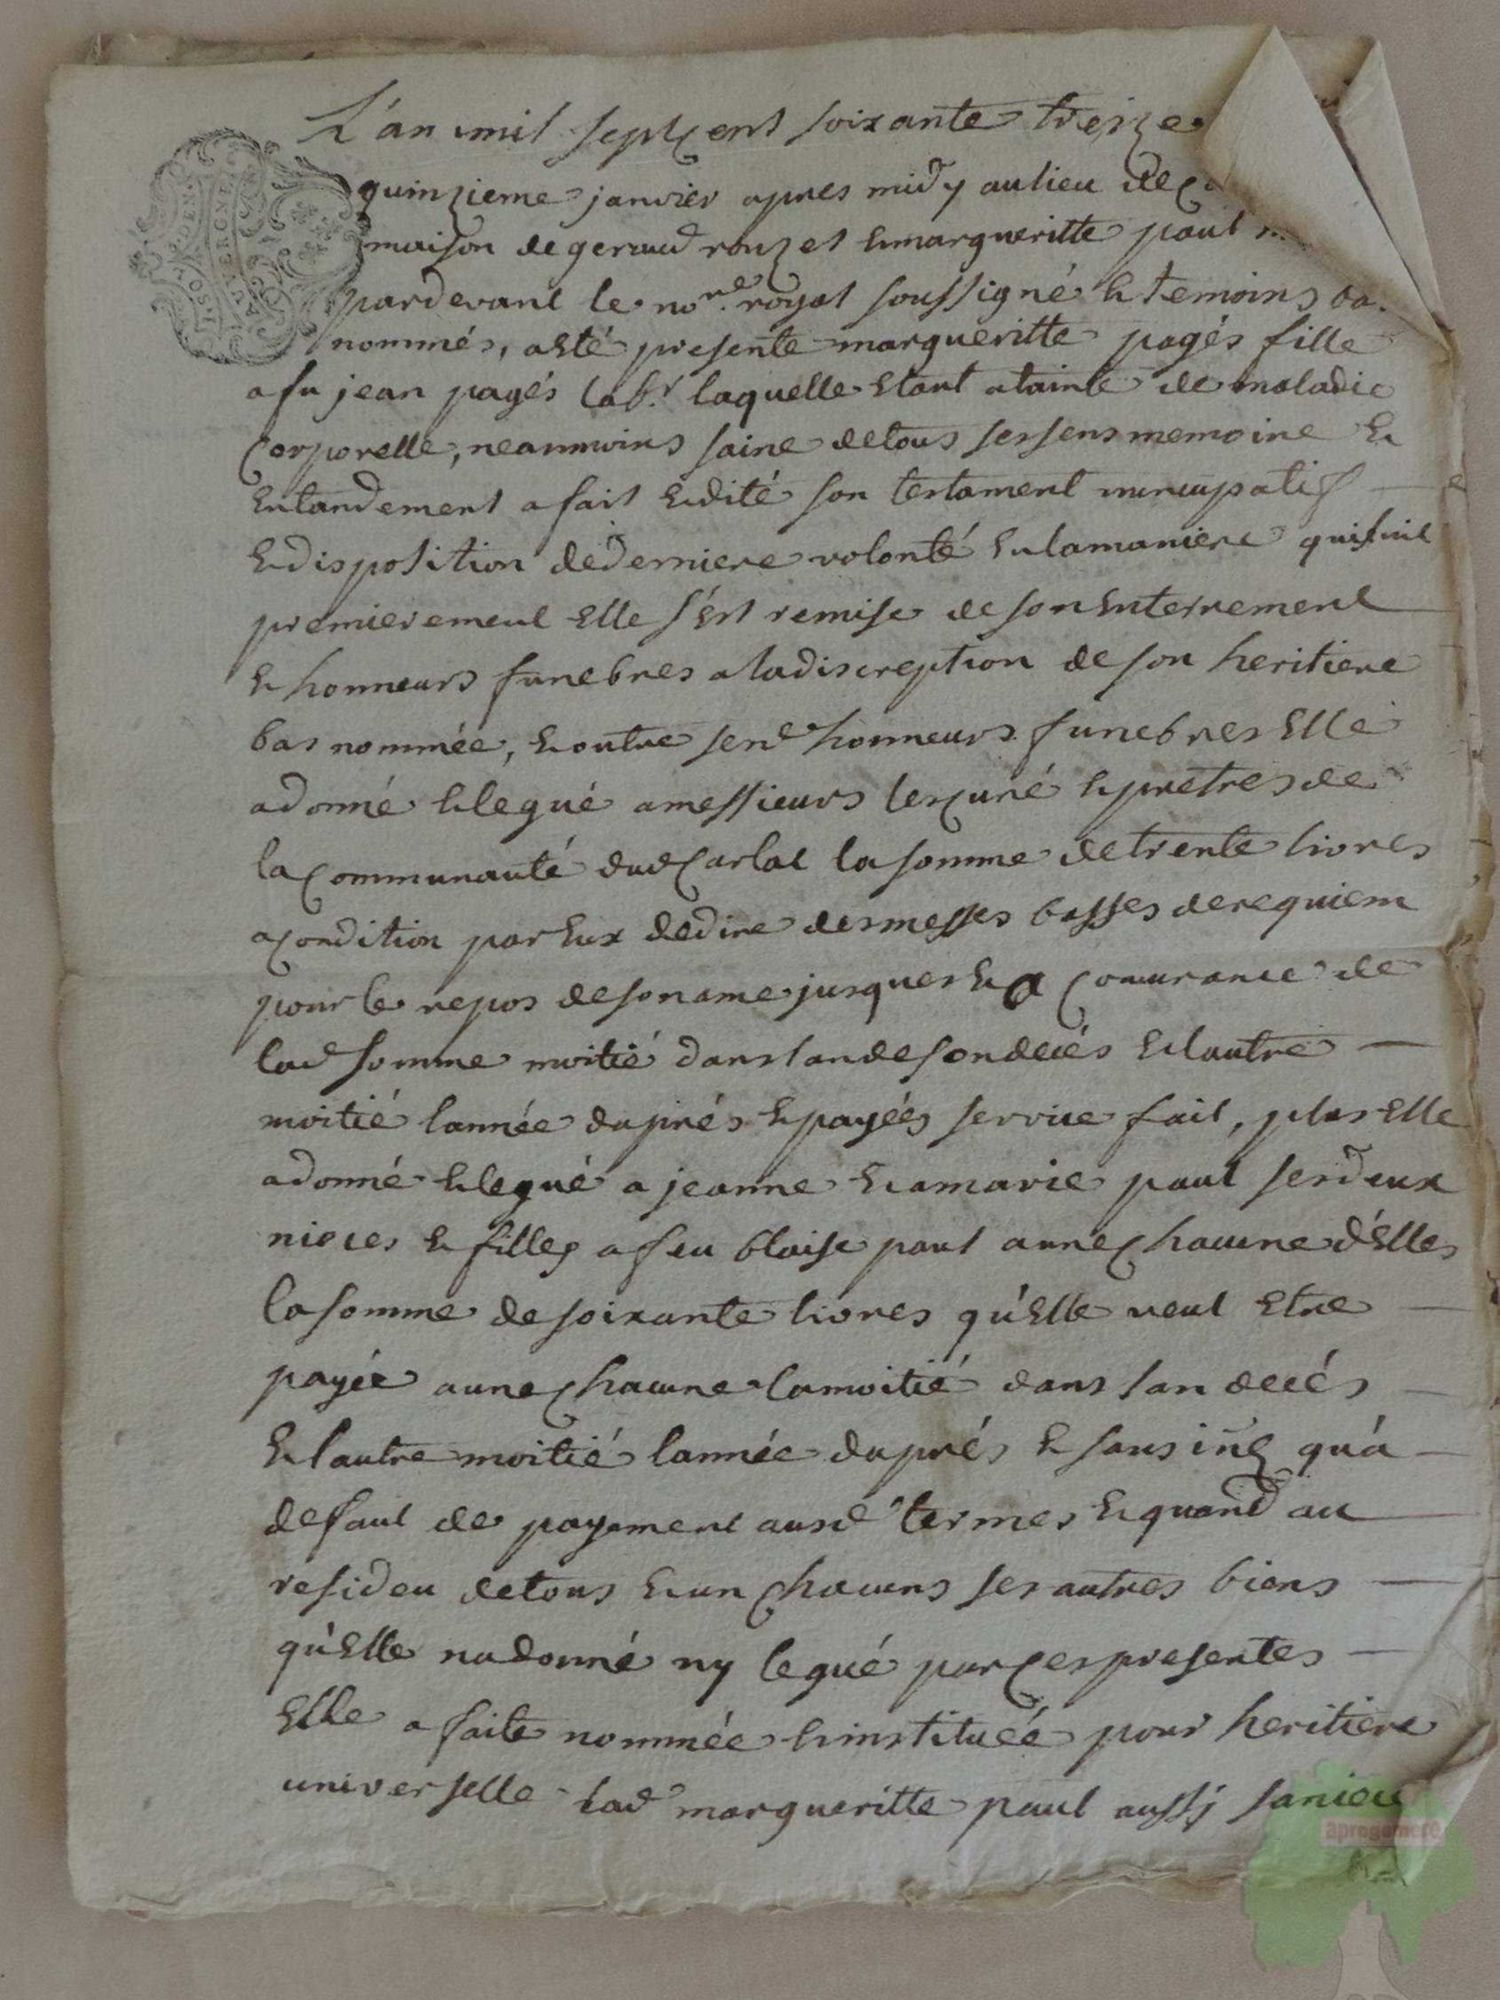 L'an mil sept cent soixante treize
quinzieme janvier apres midy au lieu de
maison de geraud rouzet & margueritte paul
pardevant le no.re royal soussigné & temoins ba
nommés, a esté presente margueritte pagés fille
a fu jean pagés lab.r laquelle etant atainte de maladie
corporelle, neanmoins saine de tous ses sens memoire &
entandement a fait & dité son testament nuncupatif
& disposition de derniere volonté en la maniere qui suit
premierement elle s'est remise de son enterrement
& honneurs funebres a la discreption de son heritiere
bas nommée, & outre sesd honneurs funebres elle
a donné & legué a messieurs les curé & pretres de
la communauté dud carlat la somme de trente livres
a condition par eux de dire des messes basses de requiem
pour le repos de son ame jusques & a concurance de
lad somme moitié dans lan de son decés & lautre
moitié lannée daprés & payées service fait, plus elle
a donné & legué a jeanne & a marie paul ses deux
nieces & filles a feu blaise paul a une chacune d'elles
la somme de soixante livres qu'elle veut etre
payée a une chacune la moitié dans lan decés
& lautre moitié lannée daprés & sans inc qu'a
defaut de payement ausd termes & quand au
resideu de tous & un chacuns ses autres biens
qu'elle na donné ny legué par ces presentes
elle a faite nommée & instituéé pour heritiere
universelle lad margueritte paul aussy sa niece
DEN.
AUVERGNE
aprogemere